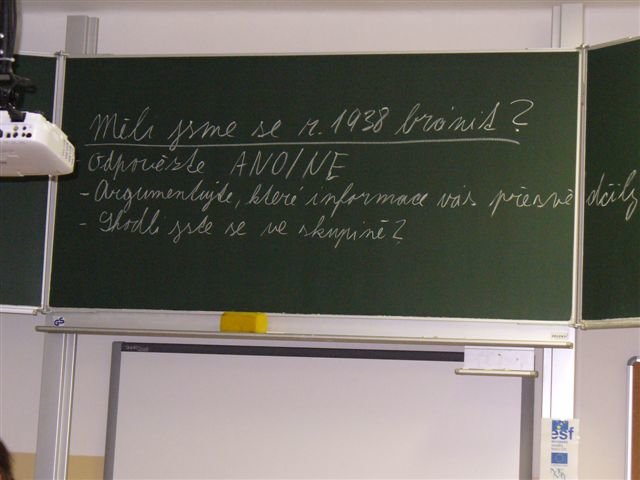 Měli jsme se r. 1938 bránit?
- Odpovězte ANO/NE
- Argumentujte, které informace vás přesvědčily
- Shodli jste se ve skupině?
GS
esf